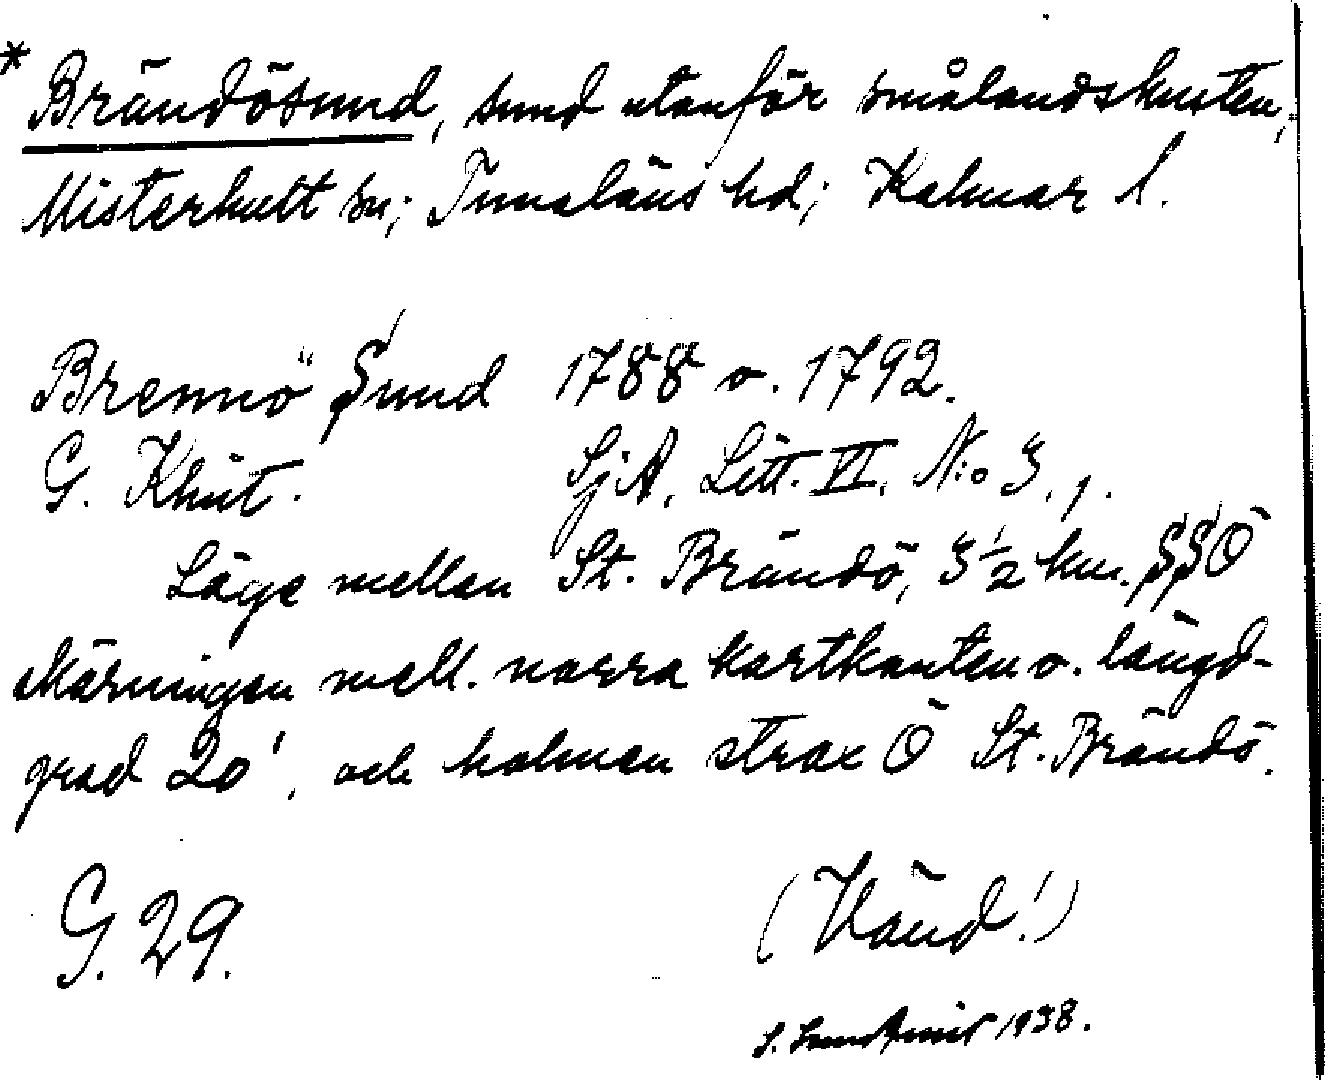 * Brändösund, sund utanför smålandskusten,
Misterhult sn; Tunaläns hd; Kalmar l.
Brennö Sund 1788 o. 1792.
G. Klint. SjA, Litt. VI, N:o 3, 1.
Läge mellan St. Brändö, 3 1/2 km. SSÖ
skärningen mell. norra kartkanten o. längd-
grad 20', och holmen strax Ö St. Brändö.
G. 29. (Vänd!)
S. 1938.